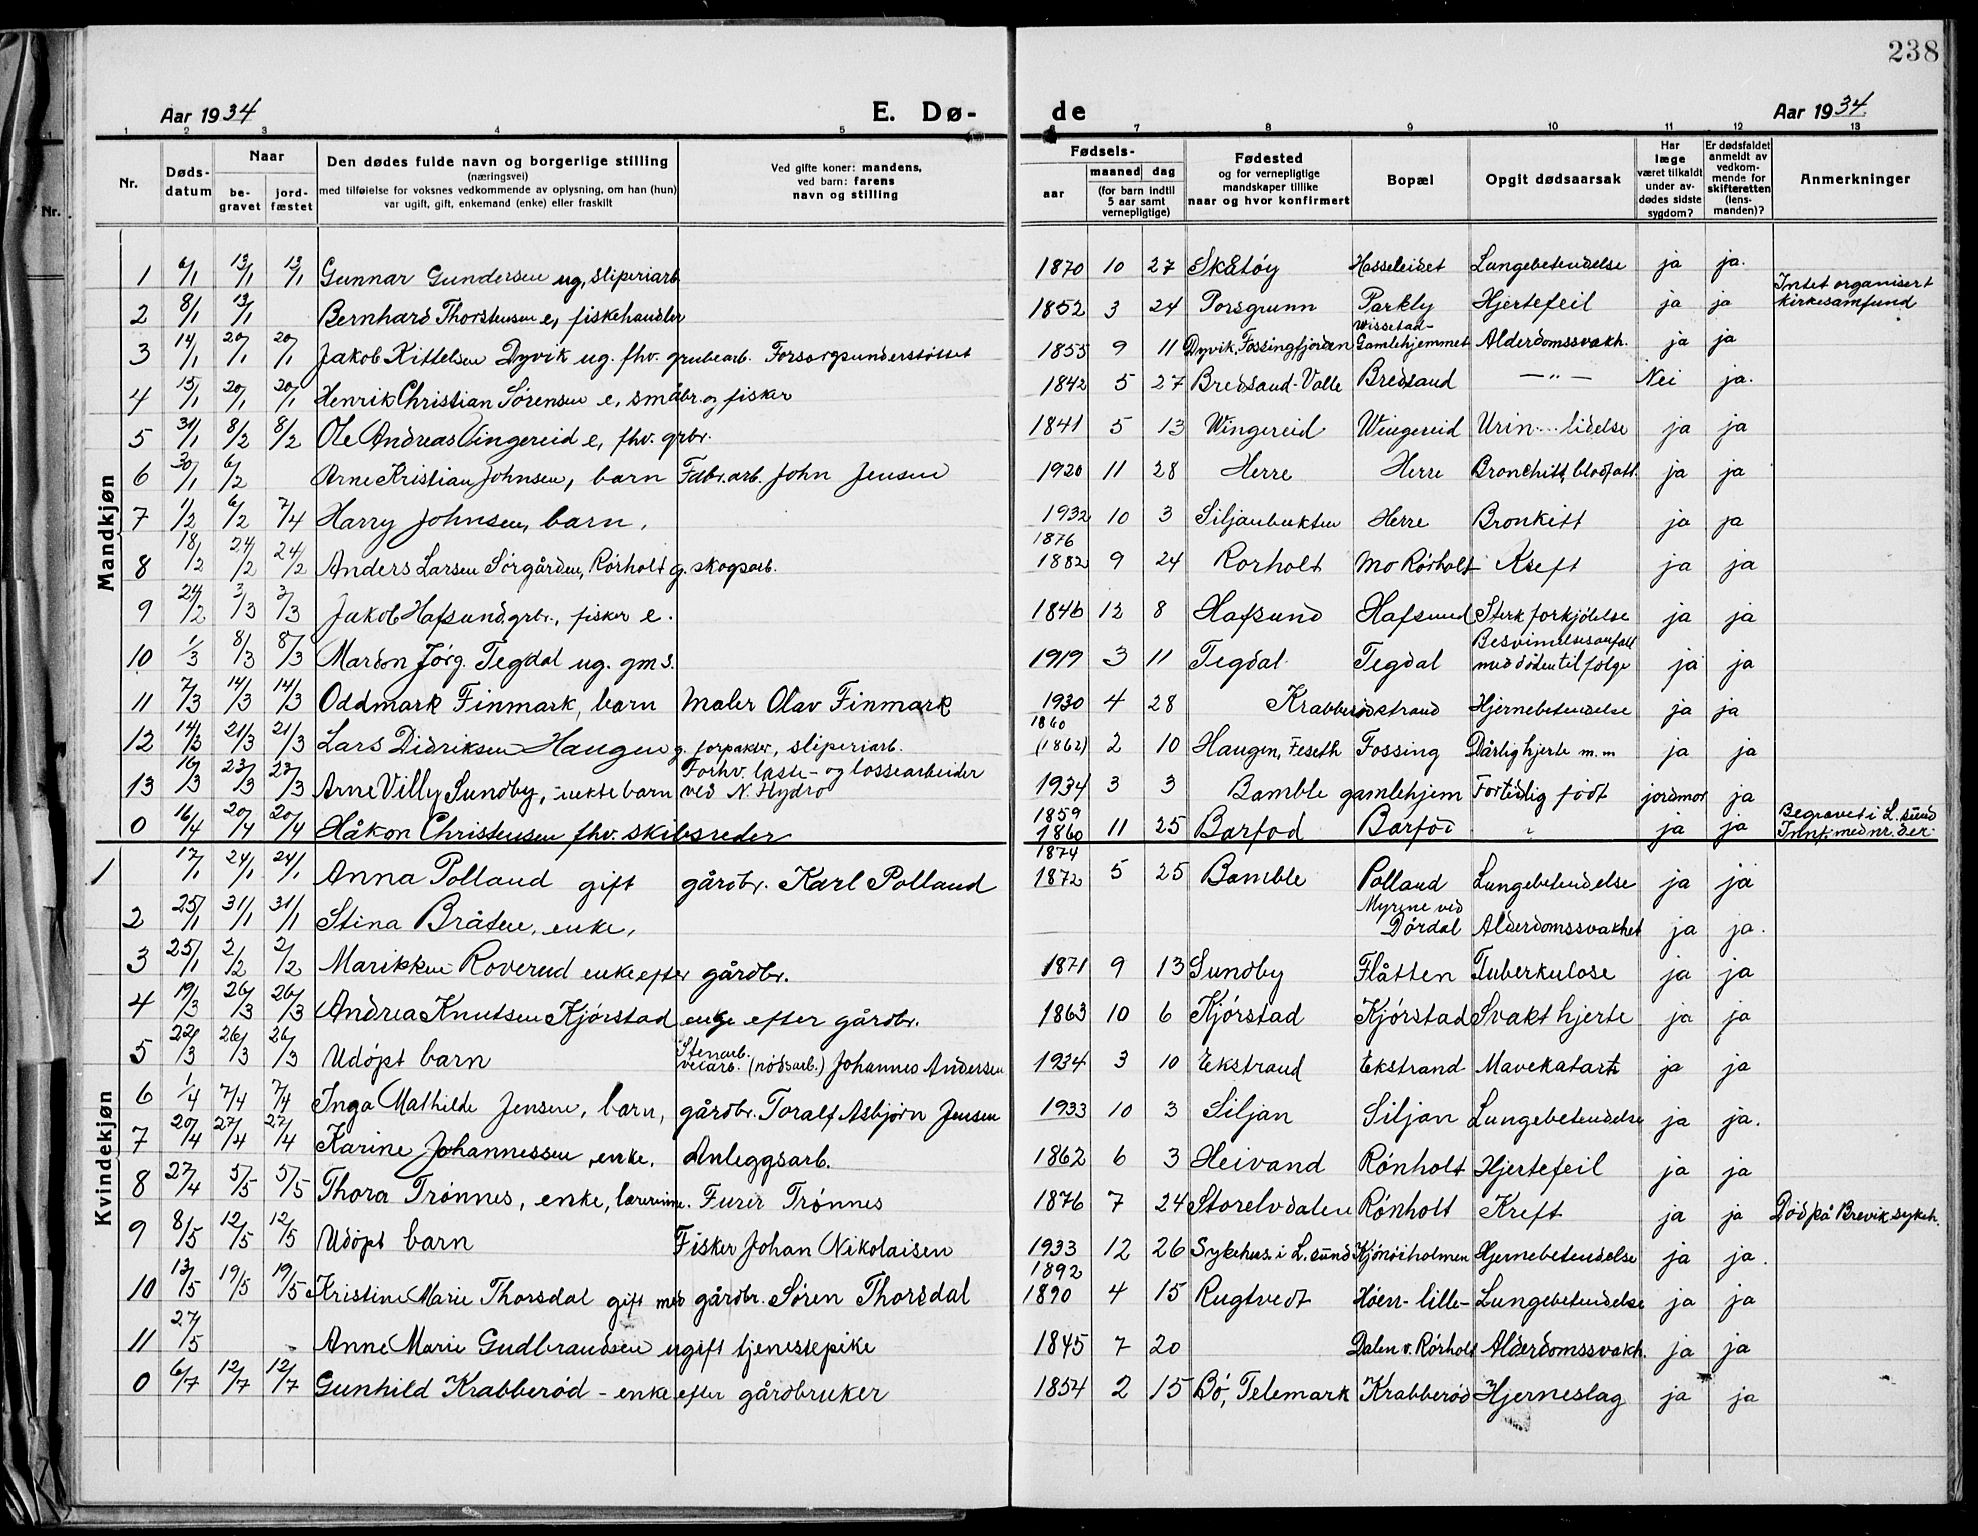 238
Aar 1934 E. Dø- de Aar 1934
1 2 3 4 5 7 8 9 10 11 12 13
Nr. Døds-datum Naar be-gravet jord-fæstet Den dødes fulde navn og borgerlige stilling (næringsvei) med tilføielse for voksnes vedkommende av oplysning, om han (hun) var ugift, gift, enkemand (enke) eller fraskilt Ved gifte koner: mandens, ved barn: farens navn og stilling Fødsels- aar maaned dag (for barn indtil 5 aar samt vernepligtige) Fødested og for vernepligtige mandskaper tillike naar og hvor konfirmert Bopæl Opgit dødsaarsak Har læge været tilkaldt under av-dødes sidste sygdom? Er dødsfaldet anmeldt av vedkom-mende for skifteretten (lens-manden)? Anmerkninger
Nr.
Mandkjøn
1 6/1 13/1 13/1 Gunnar Gundersen ug, sliperiarb 1870 10 27 Skåtøy Hasseleidet Lungebetendelse ja ja.
2 8/1 13/1 Bernhard Thorstensen e, fiskehandler 1852 3 24 Porsgrunn Parkly Hjertefeil ja ja Intet organisert kirkesamfund
3 14/1 20/1 20/1 Jakob Kittelsen Dyvik ug. fhv. grubearb. Forsorgsunderstøttet 1855 9 11 Dyvik, Fossingfjorden Wissestad-Gamlehjemmet Alderdomssvakh. ja ja
4 15/1 20/1 20/1 Henrik Christian Sørensen e, småbr. og fisker 1842 5 27 Bredsand-Valle Bredsand —"— Nei ja.
5 31/1 8/2 8/2 Ole Andreas Vingereid e, fhv. grbr. 1841 5 13 Wingereid Wingereid Urin...lidelse ja ja
6 30/1 6/2 Arne Kristian Johnsen, barn Fabr.arb. John Jensen 1920 11 28 Herre Herre Bronchitt, blodfatt. ja ja
7 1/2 6/2 7/4 Harry Johnsen, barn. 1932 10 3 Siljanbukten Herre Bronkitt ja ja
8 18/2 24/2 24/2 Anders Larsen Sørgården, Rörholt g. skogsarb. 1876 1882 9 24 Rorholt Mo Rörholt Kreft ja ja
9 24/2 3/3 3/3 Jakob Hafsund, grbr., fisker e. 1846 12 8 Hafsund Hafsund Sterk forkjölelse ja ja
10 1/3 8/3 8/3 Mardon Jörg. Tegdal ug. gms. 1919 3 11 Tegdal Tegdal Besvimelsesanfall med døden til følge ja ja
11 7/3 14/3 14/3 Oddmark Finmark, barn Maler Olav Finmark 1930 4 28 Krabberødstrand Hjernebetendelse ja ja
12 14/3 21/3 21/3 Lars Didriksen Haugen g. forpakter, sliperiarb. 1860 (1862) 2 10 Haugen, Feseth Fossing Dårlig hjerte m. m ja ja
13 16/3 23/3 23/3 Arne Villy Sundby, - uekte barn Forhv. laste- og lossearbeider ved N. Hydro 1934 3 3 Bamble gamlehjem Fortidlig født jordmor ja
0 16/4 20/4 20/4 Håkon Christensen fhv. skibsreder 1859 1860 11 25 Barfod Barfod " ja ja Begravet i L. sund Innf. med nr. der.
Kvindekjøn
1 17/1 24/1 24/1 Anna Polland gift gårdbr. Karl Polland 1874 1872 5 25 Bamble Polland Lungebetendelse ja ja
2 25/1 31/1 31/1 Stina Bråten, enke, Myrene ved Dördal Alderdomssvakhet ja ja.
3 25/1 2/2 2/2 Marikken Roverud enke efter gårdbr. 1871 9 13 Sundby Flåtten Tuberkulose ja ja
4 19/3 26/3 26/3 Andrea Knutsen Kjörstad enke efter gårdbr. 1863 10 6 Kjörstad Kjörstad Svakt hjerte ja ja
5 22/3 26/3 26/3 Udöpt barn Stenarb. veiarb. (nödsarb.) Johannes Andersen 1934 3 10 Ekstrand Ekstrand Mavekatarh ja ja
6 1/4 7/4 7/4 Inga Mathilde Jensen, barn, gårdbr. Toralf Asbjørn Jensen 1933 10 3 Siljan Siljan Lungebetendelse ja ja.
7 20/4 27/4 27/4 Karine Johannessen, enke. Anleggsarb. 1862 6 3 Heivand Rönholt Hjertefeil ja ja
8 27/4 5/5 5/5 Thora Trönnes, enke, lærerinne. Furer Trönnes 1876 7 24 Storelvdalen Rönholt Kreft ja ja Död på Brevik sykeh.
9 8/5 12/5 12/5 Udöpt barn Fisker Johan Nikolaisen 1933 12 26 Sykehus i L. sund Kjönöiholmen Hjernebetendelse ja ja.
10 13/5 19/5 19/5 Kristine Marie Thorsdal gift med gårdbr. Sören Thorsdal 1892 1890 4 15 Rugtvedt Höen-lille- Lungebetendelse ja ja
11 27/5 - Anne Marie Gudbrandsen ugift tjenestepike 1845 7 20 Dalen v. Rörholt Alderdomssvakh. ja ja
0 6/7 12/7 12/7 Gunhild Krabberød - enke efter gårdbruker 1854 2 15 Bö, Telemark Krabberød Hjerneslag ja ja